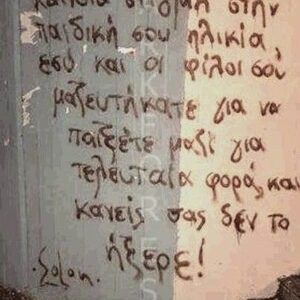 κάποια στιγμή στην
παιδική σου ηλικία,
εσύ και οι φίλοι σου
μαζευτήκατε για να
παίξετε μαζί για
τελευταία φορά, και
κανείς σας δεν το
ήξερε!